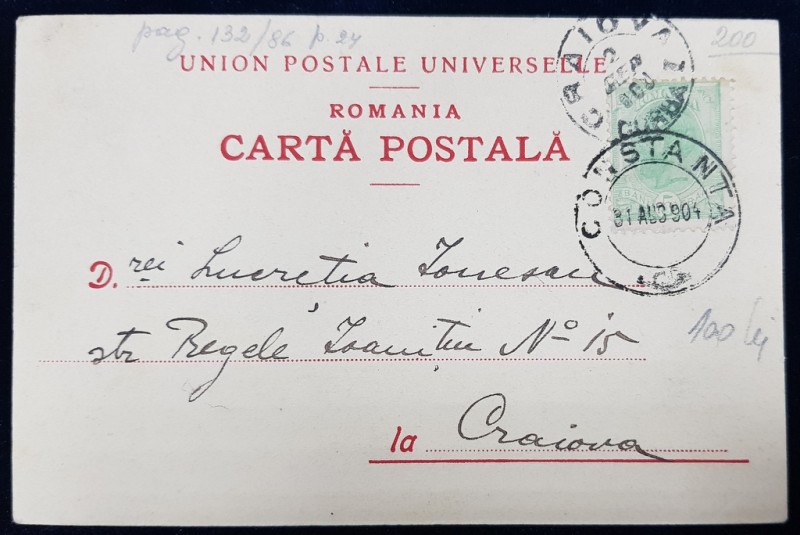 pag. 132/86 p. 24
200
UNION POSTALE UNIVERSELLE
ROMANIA
CARTĂ POSTALĂ
CRAIOVA
CONSTANTA
31 AUG 904
D.rei Lucreția Ionescu
str Regele Ioanițiu No 15
100 lei
la Craiova